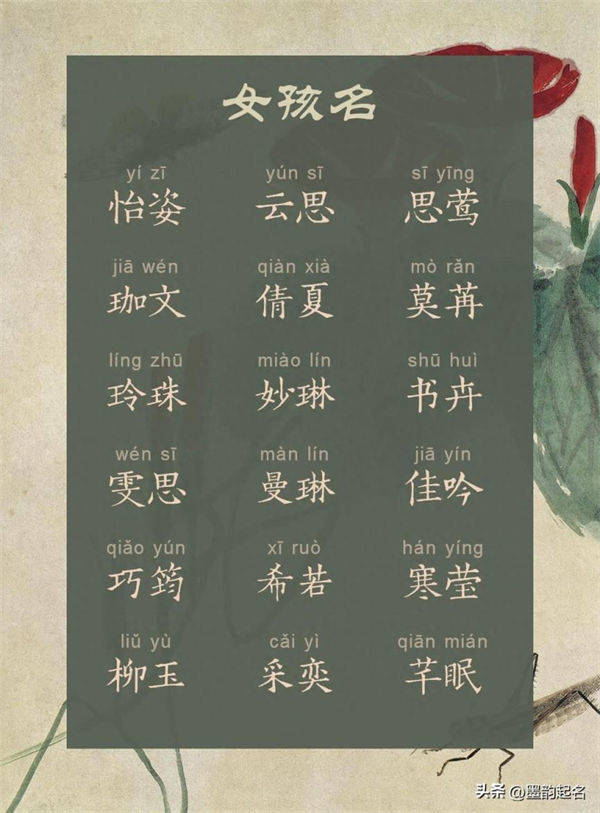 女孩名
yí zī yún sī sī yīng
怡姿 云思 思莺
jiā wén qiàn xià mò rǎn
珈文 倩夏 莫苒
líng zhū miào lín shū huì
玲珠 妙琳 书卉
wén sī màn lín jiā yín
雯思 曼琳 佳吟
qiǎo yún xī ruò hán yíng
巧筠 希若 寒莹
liǔ yù cǎi yì qiān mián
柳玉 采奕 芊眠
头条 @墨韵起名